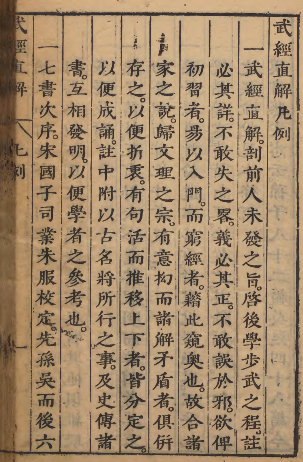 武經直解凡例
一武經直解。剖前人未發之旨。啓後學步武之程。註
必其詳。不敢失之畧。義必其正。不敢誤於邪。欲俾
初習者。易以入門。而窮經者。藉此窺奧也。故合諸
家之說。歸文理之宗。有意拘而諸解矛盾者。俱併
存之。以便折衷。有句活而推移上下者。皆分定之。
以便成誦。註中附以古名將所行之事。及史傳諸
書。互相發明。以便學者之參考也。
一七書次序。宋國子司業朱服校定。先孫吳而後六
武經直解
凡例
一